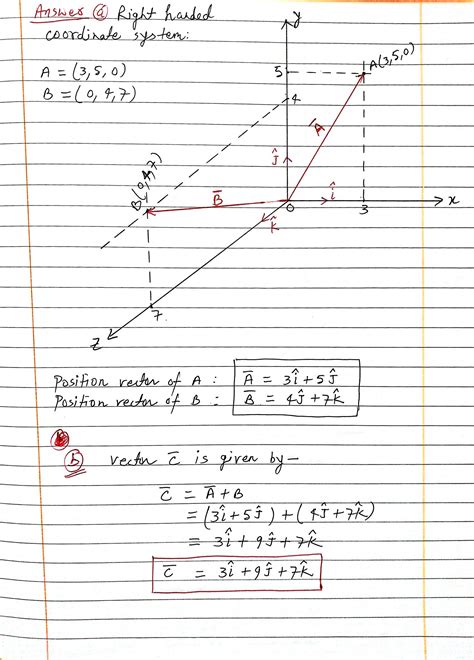 Answer ⓐ Right handed
coordinate system:
A = (3,5,0)
B = (0,4,7)
y
A(3,5,0)
5
4
A̅
ĵ
B(0,4,7)
B̅
0
î
3
x
k̂
7
z
Position vector of A : A̅ = 3î+5ĵ
Position vector of B : B̅ = 4ĵ+7k̂
ⓑ vector C̅ is given by—
C̅ = A̅+B
= (3î+5ĵ) + (4ĵ+7k̂)
= 3î+9ĵ+7k̂
C̅ = 3î+9ĵ+7k̂